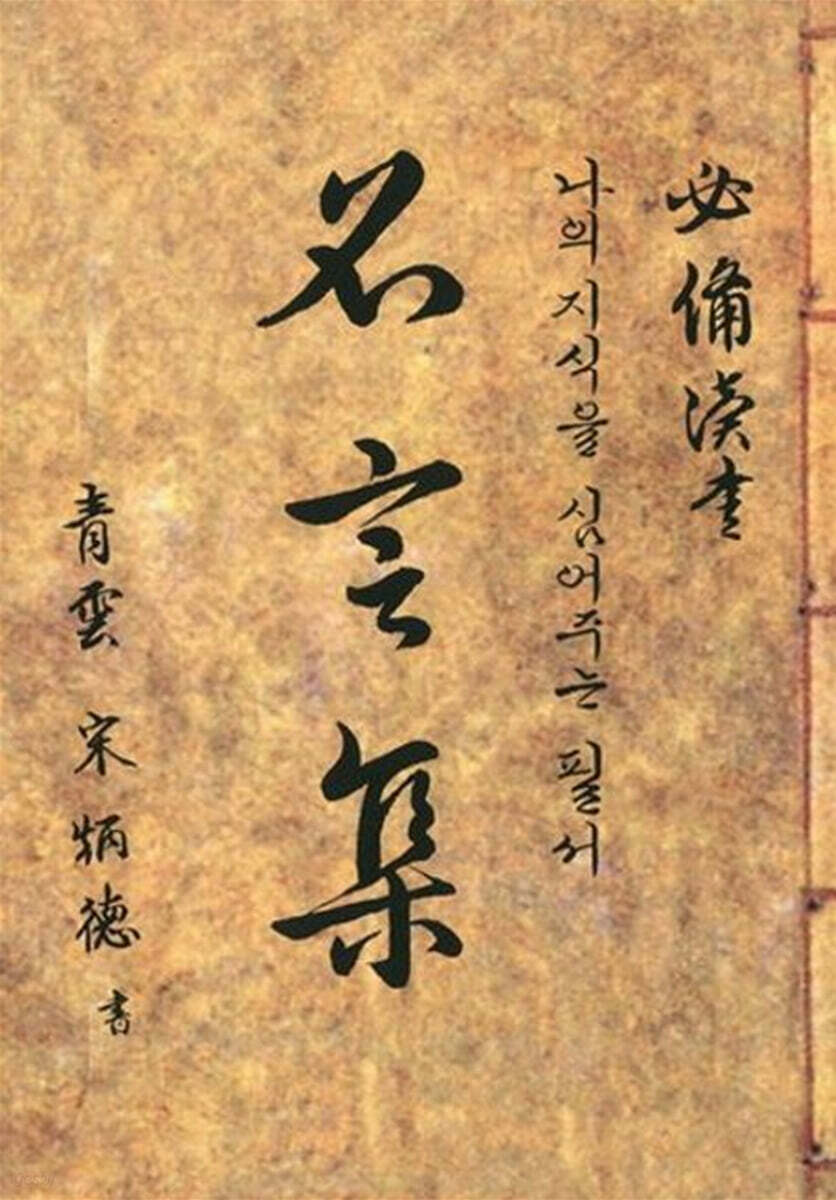 必備漢書
나의 지식을 심어주는 필서
名言集
青雲 宋炳德 書